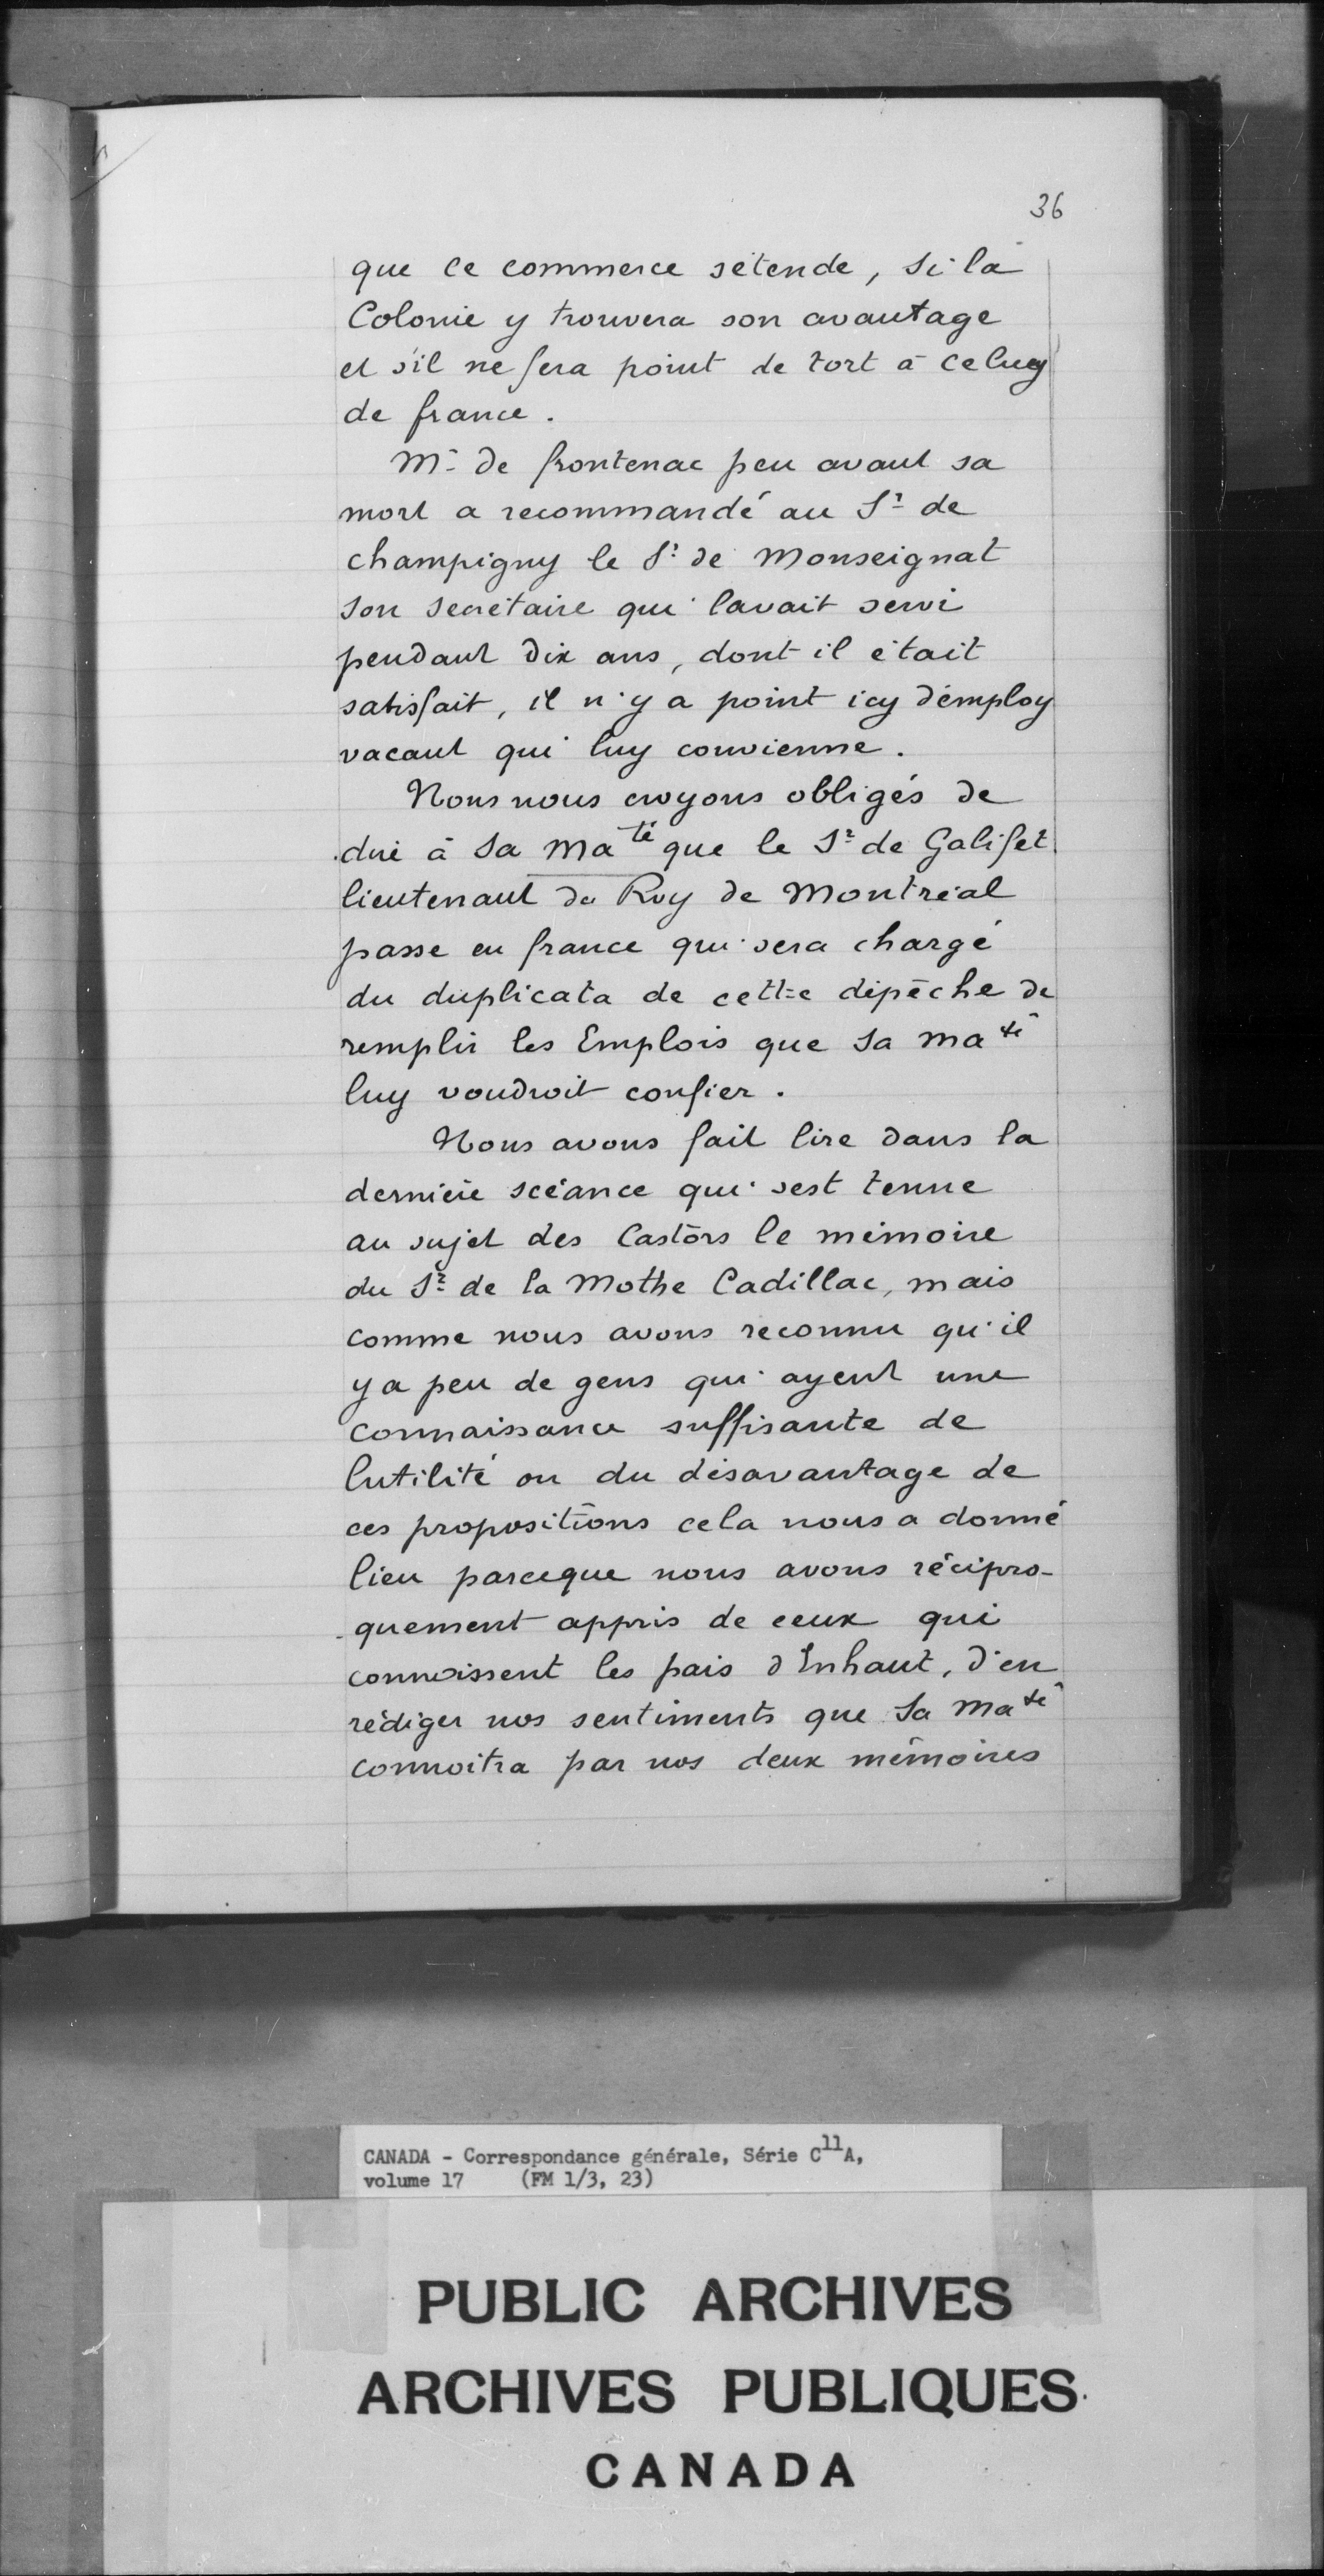 36
que ce commerce sétende, si la
Colonie y trouvera son avantage
et s'il ne fera point de tort à celuy
de france.
Mr de frontenac peu avant sa
mort a recommandé au Sr de
champigny le Sr de Monseignat
son secrétaire qui lavait servi
pendant dix ans, dont il était
satisfait, il n'y a point icy d'employ
vacant qui luy convienne.
Nous nous croyons obligés de
dire à Sa Maté que le Sr de Galifet
lieutenant du Roy de Montréal
passe en france qui sera chargé
du duplicata de cette dépêche de
remplir les Emplois que Sa Maté
luy voudroit confier.
Nous avons fait lire dans la
dernière scéance qui sest tenue
au sujet des Castors le mémoire
du Sr de la Mothe Cadillac, mais
comme nous avons reconnu qu'il
y a peu de gens qui ayent une
connaissance suffisante de
lutilité ou du désavantage de
ces propositions cela nous a donné
lieu parceque nous avons récipro-
-quement appris de ceux qui
connoissent les pais d'Enhaut, d'en
rédiger nos sentiments que Sa Maté
connoitra par nos deux mémoires
CANADA - Correspondance générale, Série C11A,
volume 17 (FM 1/3, 23)
PUBLIC ARCHIVES
ARCHIVES PUBLIQUES
CANADA